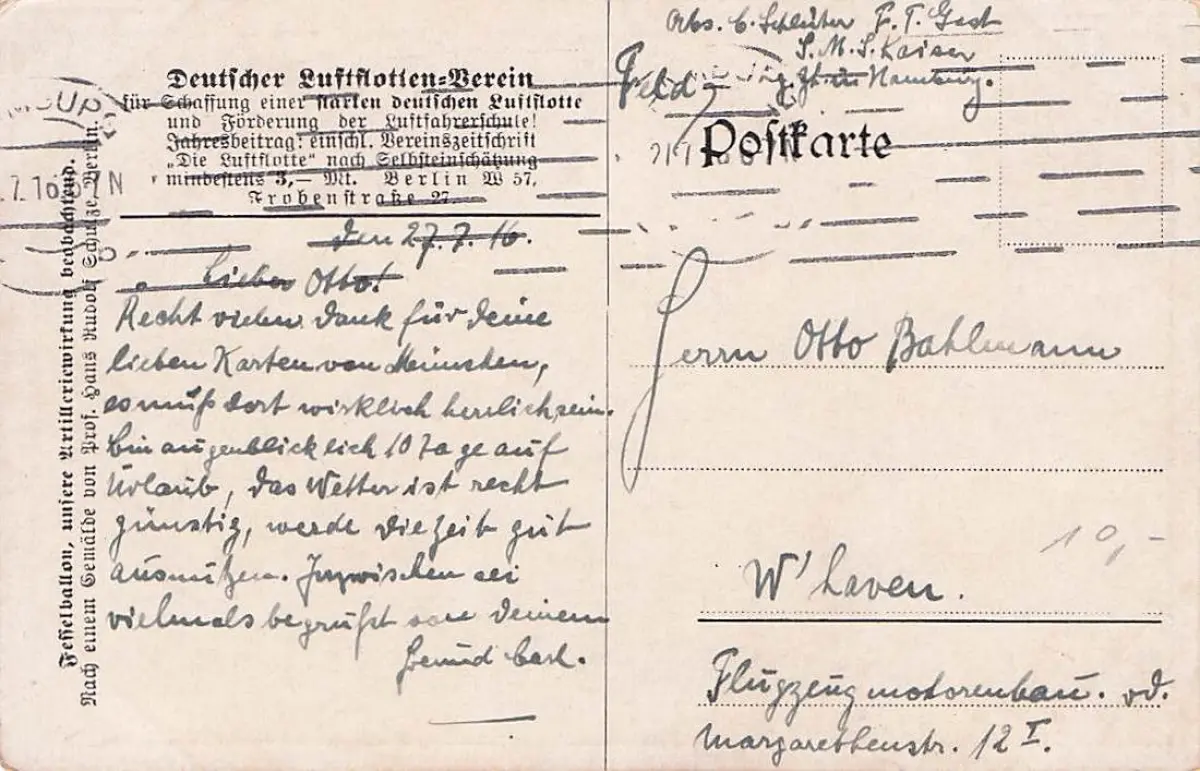 Deutscher Luftflotten-Verein
für Schaffung einer starken deutschen Luftflotte
und Förderung der Luftfahrerschule!
Jahresbeitrag: einschl. Vereinszeitschrift
„Die Luftflotte“ nach Selbsteinschätzung
mindestens 3,— Mk. Berlin W 57,
Frobenstraße 27.
Fesselballon, unsere Artilleriewirkung beobachtend.
Nach einem Gemälde von Prof. Hans Rudolf Schulze, Berlin.
den 27.7.16.
Lieber Otto!
Recht vielen Dank für Deine
lieben Karten von München,
es muß dort wirklich herrlich sein.
Bin augenblicklich 10 Tage auf
Urlaub, das Wetter ist recht
günstig, werde die Zeit gut
ausnutzen. Inzwischen sei
vielmals begrüßt von Deinem
Freund Carl.
Abs. C. Schlüter F. T. Gast
S. M. S. Kaiser
Hamburg.
Feld
Postkarte
Herrn Otto Bahlmann
10,-
W'haven.
Flugzeugmotorenbau. od.
Margarethenstr. 12 I.